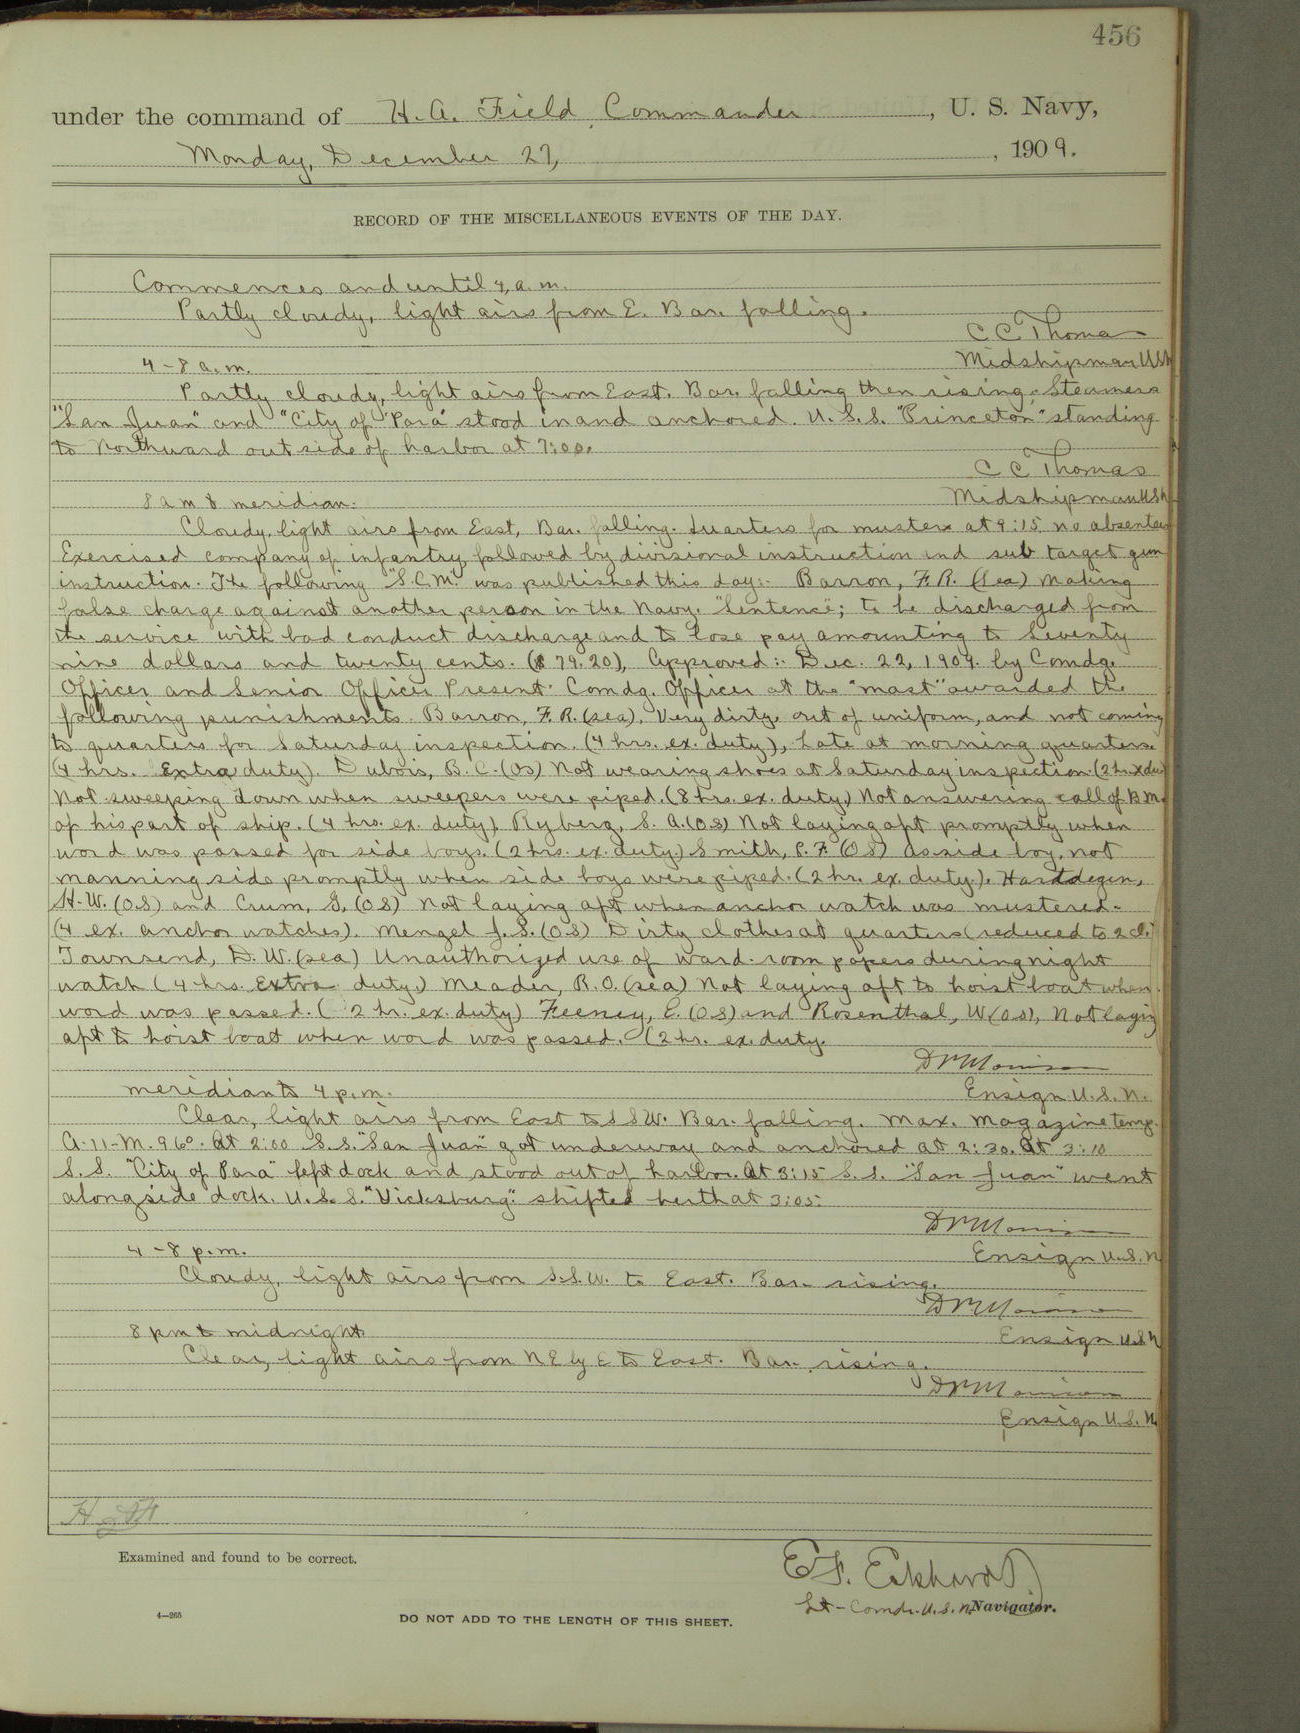 456
under the command of H. A. Field, Commander, U. S. Navy,
Monday, December 27, 1909.
RECORD OF THE MISCELLANEOUS EVENTS OF THE DAY.
Commences and until 4 a.m.
Partly cloudy, light airs from E. Bar. falling.
C C Thomas
4-8 a.m.
Midshipman USN
Partly cloudy, light airs from East. Bar. falling then rising. Steamers
"San Juan" and "City of Para" stood in and anchored. U.S.S. "Princeton" standing
to Northward outside of harbor at 7:00.
C C Thomas
8 a m to meridian.
Midshipman USN
Cloudy, light airs from East, Bar. falling. Quarters for muster at 9:15 no absentees
Exercised company of infantry followed by divisional instruction and sub target gun
instruction. The following "S.C.M." was published this day:- Barron, F.R. (Sea) Making
false charge against another person in the Navy. "Sentence"; to be discharged from
the service with bad conduct discharge and to lose pay amounting to Seventy
nine dollars and twenty cents. ($79.20), Approved:- Dec. 22, 1909. by Comdg.
Officer and Senior Officer Present. Comdg. Officer at the "mast" awarded the
following punishments. Barron, F.R. (sea). Very dirty, out of uniform, and not coming
to quarters for Saturday inspection. (4 hrs. ex. duty), Late at morning quarters.
(4 hrs. Extra duty). Dubois, B.C. (OS) Not wearing shoes at Saturday inspection. (2 hr. x du)
Not sweeping down when sweepers were piped. (8 hrs. ex. duty) Not answering call of B.M.
of his part of ship. (4 hrs. ex. duty) Ryberg, S. A. (O.S) Not laying aft promptly when
word was passed for side boys. (2 hrs. ex. duty) Smith, P. F. (O S) As side boy, not
manning side promptly when side boys were piped. (2 hr. ex. duty.). Harddegen,
H. W. (O.S) and Crum, G. (O S) Not laying aft when anchor watch was mustered.
(4 ex. anchor watches). Mengel J. S. (O S) Dirty clothes at quarters (reduced to 2 cl.)
Townsend, D. W. (sea) Unauthorized use of ward-room papers during night
watch (4 hrs. Extra duty.) Meader, R. O. (sea) Not laying aft to hoist boat when
word was passed. (2 hr. ex. duty) Feeney, E. (O S) and Rosenthal, W (O.S), Not laying
aft to hoist boat when word was passed. (2 hr. ex. duty.
Ensign U.S.N.
meridian to 4 p.m.
Clear, light airs from East to SSW. Bar. falling. Max. Magazine temp.
A-11-M. 96°. At 2:00 S.S. "San Juan" got underway and anchored at 2:30. At 3:10
S.S. "City of Para" left dock and stood out of harbor. At 3:15 S.S. "San Juan" went
alongside dock. U.S.S. "Vicksburg" shifted berth at 3:05.
4-8 p.m.
Ensign U.S.N
Cloudy, light airs from S.S.W. to East. Bar. rising.
8 pm to midnight
Ensign U.S.N
Clear, light airs from NE by E to East. Bar. rising.
Ensign U.S.N.
Examined and found to be correct.
E F. Eckhardt
Lt-Comdr. U.S.N. Navigator.
4—265
DO NOT ADD TO THE LENGTH OF THIS SHEET.